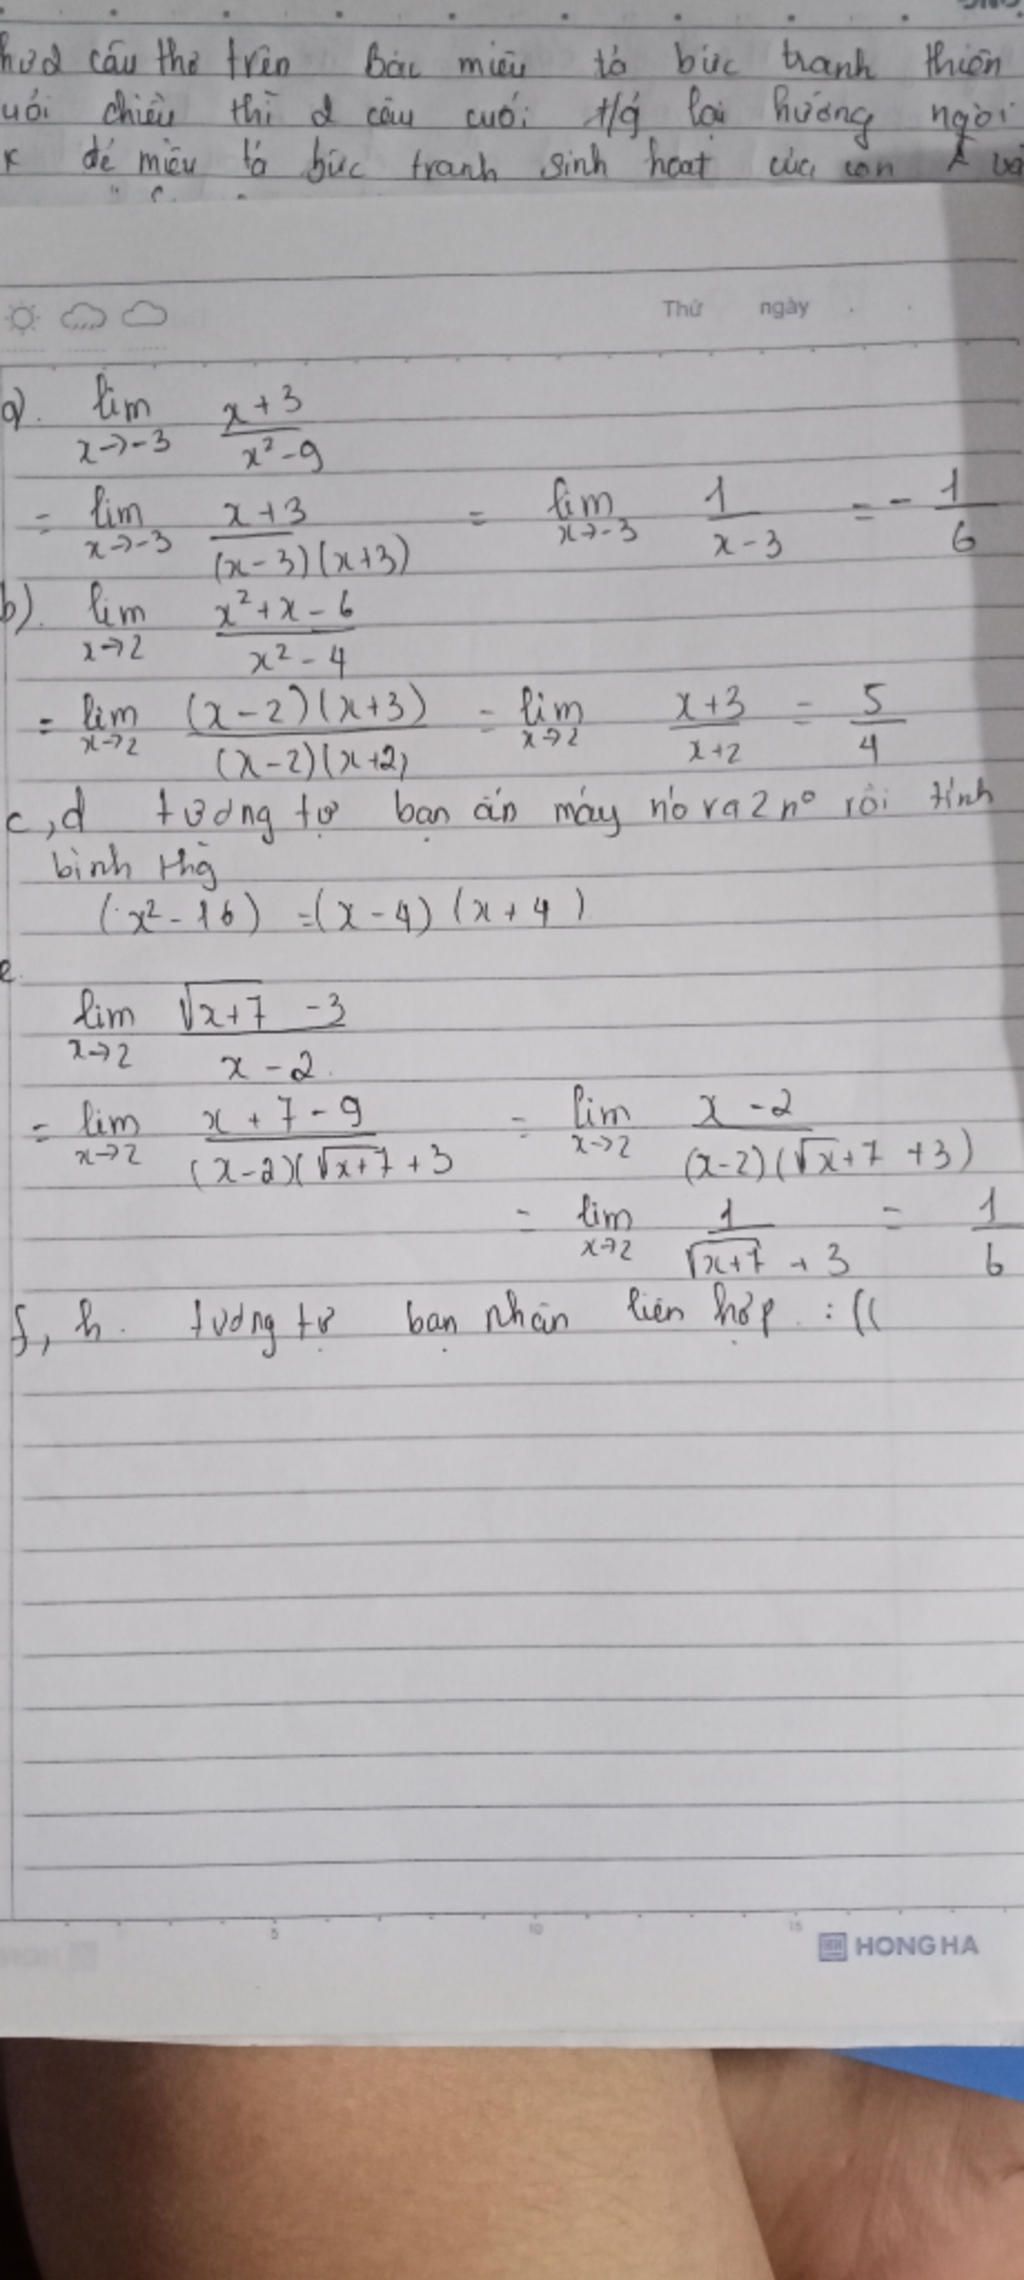 câu thơ trên Bác miêu tả bức tranh thiên
chiều thì 2 câu cuối t/g lại hướng ngòi
để miêu tả bức tranh sinh hoạt của con
Thứ ngày
a). lim x→-3 (x+3)/(x²-9)
= lim x→-3 (x+3)/((x-3)(x+3)) = lim x→-3 1/(x-3) = - 1/6
b). lim x→2 (x²+x-6)/(x²-4)
= lim x→2 ((x-2)(x+3))/((x-2)(x+2)) = lim x→2 (x+3)/(x+2) = 5/4
c, d tương tự bạn ấn máy nó ra 2 n° rồi tính
bình thg
(x²-16) =(x-4) (x+4)
e.
lim x→2 (√(x+7) -3)/(x-2)
= lim x→2 (x+7-9)/((x-2)(√(x+7)+3 = lim x→2 (x-2)/((x-2)(√x+7 +3)
= lim x→2 1/(√(x+7) +3) = 1/6
f, h. tương tự bạn nhân liên hợp :((
5 10 15
HONG HA